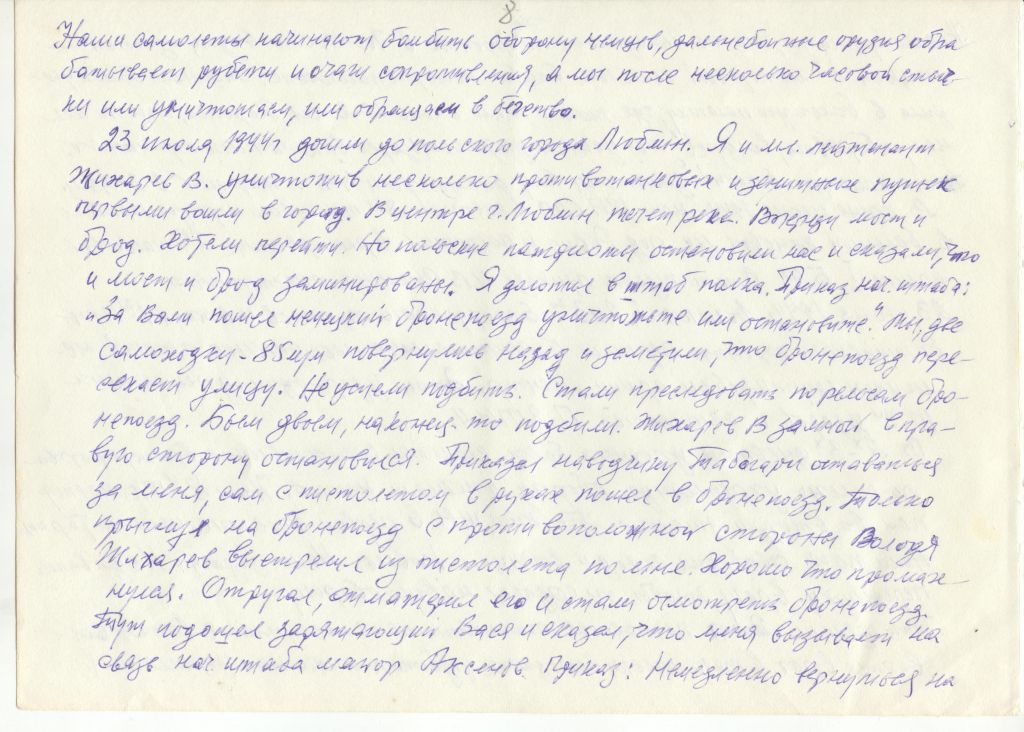 8
Наши самолеты начинают бомбить оборону немцев, дальнебойные орудия обра
батывает рубежи и очаги сопротивления, а мы после несколько часовой стыч-
ки или уничтожаем, или обращаем в бегство.
23 июля 1944г дошли до польского города Люблин. Я и мл. лейтенант
Жихарев В. уничтожив несколько противотанковых и зенитных пушек
первыми вошли в город. В центре г. Люблин течет река. Впереди мост и
брод. Хотели перейти. Но польские патриоты остановили нас и сказали, что
и мост и брод заминированы. Я доложил в штаб полка. Приказ нач. штаба:
„За Вами пошел немецкий бронепоезд уничтожьте или остановите." Мы, две
самоходки - 85мм повернулись назад и заметили, что бронепоезд пере-
секает улицу. Не успели подбить. Стали преследовать по рельсам бро-
непоезд. Били двоем, наконец-то подбили. Жихарев В за мной в пра-
вую сторону остановился. Приказал наводчику Табагари оставаться
за меня, сам с пистолетом в руках пошел в бронепоезд. Только
прыгнул на бронепоезд с противоположной стороны Володя
Жихарев выстрелил из пистолета по мне. Хорошо что промах-
нулся. Отругал, отматерил его и стали осмотреть бронепоезд.
Тут подошел задяжающий Вася и сказал, что меня вызывает на
связь нач штаба майор Аксенов. Приказ: Немедленно вернуться на